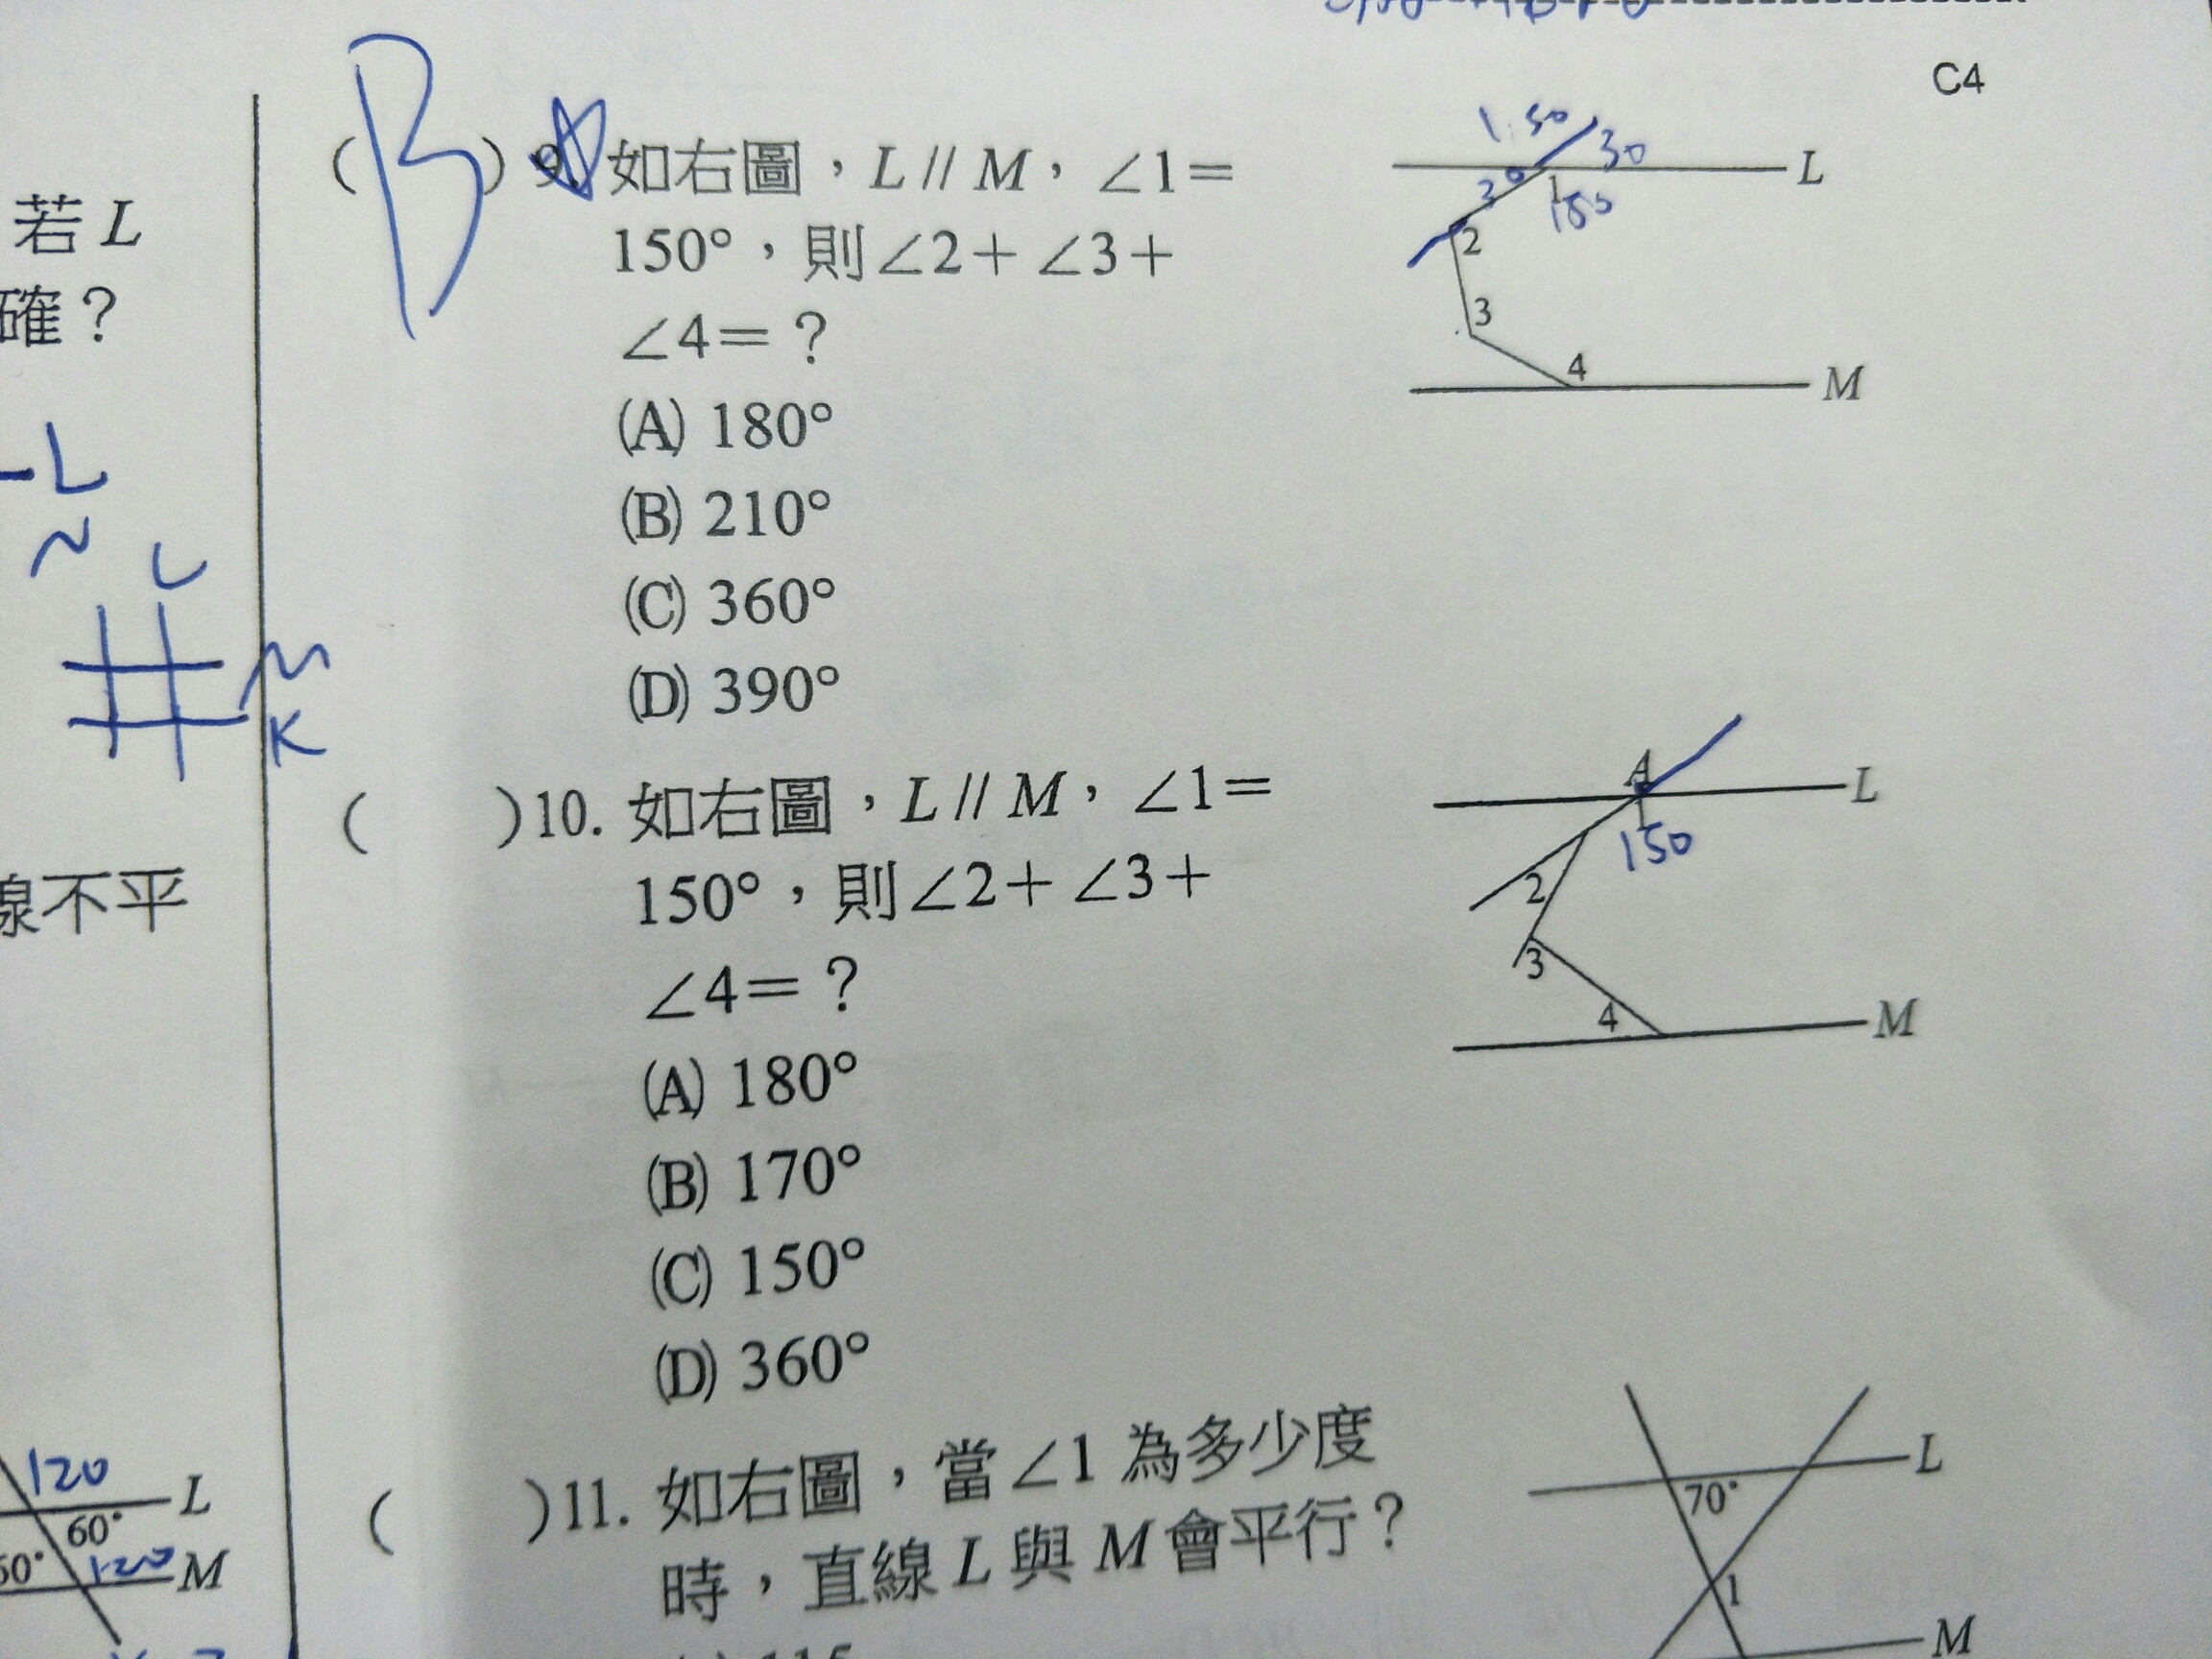 C4
若 L
確？
-L
N
L
M
K
線不平
120
L
60°
60°
120
M
( B ) 9. 如右圖，L // M，∠1＝
150°，則∠2＋∠3＋
∠4＝？
(A) 180°
(B) 210°
(C) 360°
(D) 390°
150
30
L
30
1
150
2
3
4
M
( )10. 如右圖，L // M，∠1＝
150°，則∠2＋∠3＋
∠4＝？
(A) 180°
(B) 170°
(C) 150°
(D) 360°
A
L
1
150
2
3
4
M
( )11. 如右圖，當∠1 為多少度
時，直線 L 與 M 會平行？
L
70°
1
M